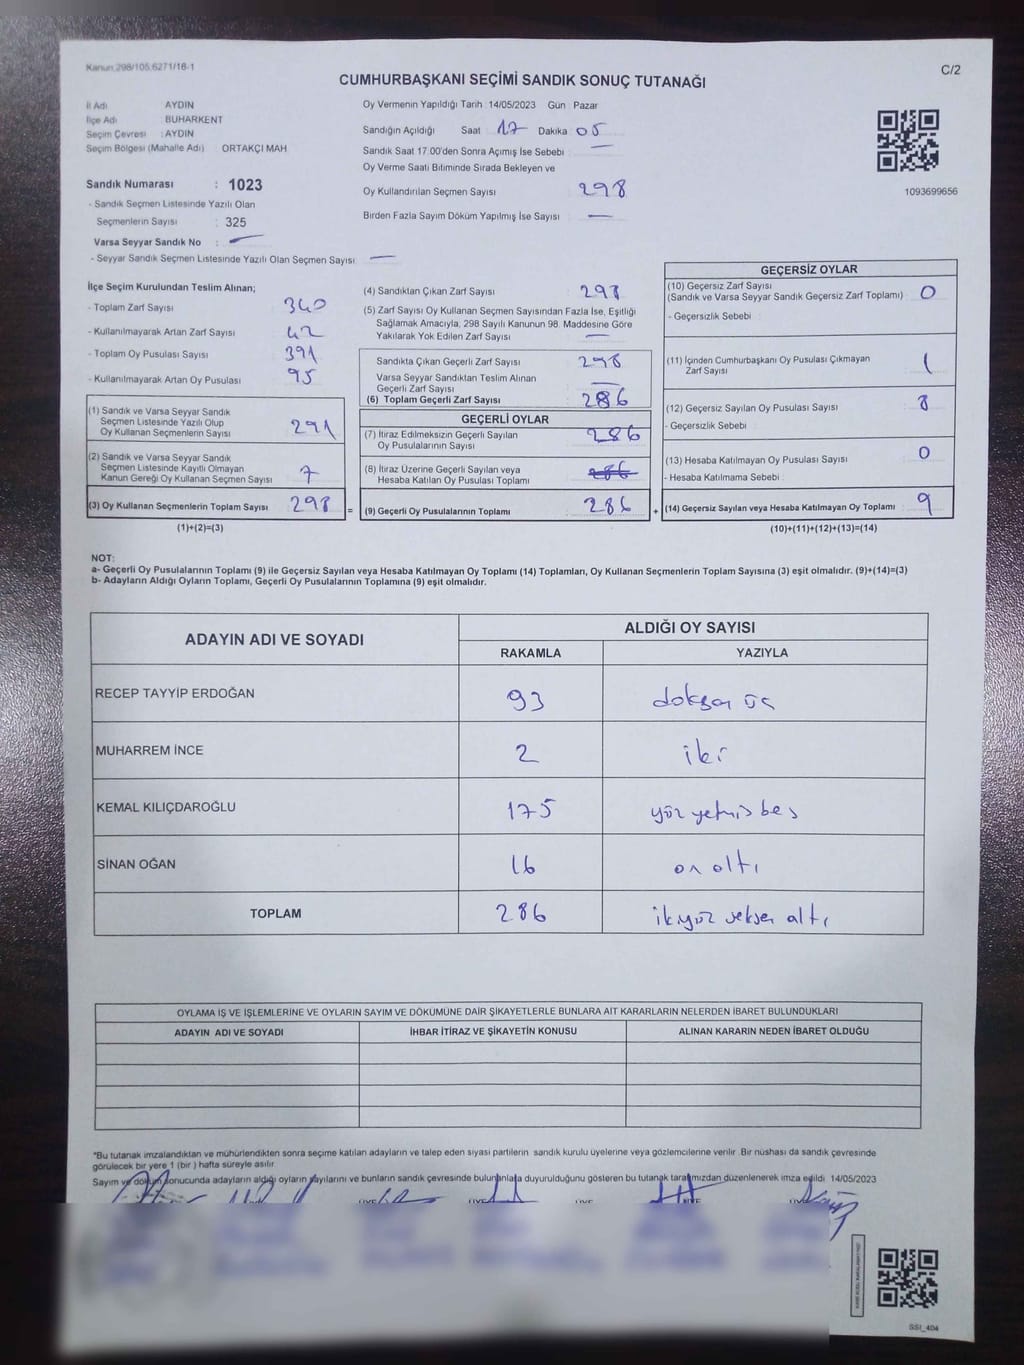 Kanun:298/105.6271/16-1
C/2
CUMHURBAŞKANI SEÇİMİ SANDIK SONUÇ TUTANAĞI
İl Adı AYDIN
İlçe Adı BUHARKENT
Seçim Çevresi : AYDIN
Seçim Bölgesi (Mahalle Adı) ORTAKÇI MAH.
Sandık Numarası : 1023
- Sandık Seçmen Listesinde Yazılı Olan
Seçmenlerin Sayısı : 325
Varsa Seyyar Sandık No : —
- Seyyar Sandık Seçmen Listesinde Yazılı Olan Seçmen Sayısı —
Oy Vermenin Yapıldığı Tarih : 14/05/2023 Gün : Pazar
Sandığın Açıldığı Saat 17 Dakika 05
Sandık Saat 17.00'den Sonra Açımış İse Sebebi : —
Oy Verme Saati Bitiminde Sırada Bekleyen ve
Oy Kullandırılan Seçmen Sayısı 298
Birden Fazla Sayım Döküm Yapılmış İse Sayısı —
1093699656
İlçe Seçim Kurulundan Teslim Alınan;
- Toplam Zarf Sayısı 340
- Kullanılmayarak Artan Zarf Sayısı 42
- Toplam Oy Pusulası Sayısı 391
- Kullanılmayarak Artan Oy Pusulası 95
(1) Sandık ve Varsa Seyyar Sandık
Seçmen Listesinde Yazılı Olup
Oy Kullanan Seçmenlerin Sayısı 291
(2) Sandık ve Varsa Seyyar Sandık
Seçmen Listesinde Kayıtlı Olmayan
Kanun Gereği Oy Kullanan Seçmen Sayısı 7
(3) Oy Kullanan Seçmenlerin Toplam Sayısı 298 =
(1)+(2)=(3)
(4) Sandıktan Çıkan Zarf Sayısı 298
(5) Zarf Sayısı Oy Kullanan Seçmen Sayısından Fazla İse, Eşitliği
Sağlamak Amacıyla, 298 Sayılı Kanunun 98. Maddesine Göre
Yakılarak Yok Edilen Zarf Sayısı —
Sandıkta Çıkan Geçerli Zarf Sayısı 298
Varsa Seyyar Sandıktan Teslim Alınan
Geçerli Zarf Sayısı —
(6) Toplam Geçerli Zarf Sayısı 286
GEÇERLİ OYLAR
(7) İtiraz Edilmeksizin Geçerli Sayılan
Oy Pusulalarının Sayısı 286
(8) İtiraz Üzerine Geçerli Sayılan veya
Hesaba Katılan Oy Pusulası Toplamı 286
(9) Geçerli Oy Pusulalarının Toplamı 286 +
GEÇERSİZ OYLAR
(10) Geçersiz Zarf Sayısı
(Sandık ve Varsa Seyyar Sandık Geçersiz Zarf Toplamı) 0
- Geçersizlik Sebebi :
(11) İçinden Cumhurbaşkanı Oy Pusulası Çıkmayan
Zarf Sayısı 1
(12) Geçersiz Sayılan Oy Pusulası Sayısı 8
- Geçersizlik Sebebi
(13) Hesaba Katılmayan Oy Pusulası Sayısı 0
- Hesaba Katılmama Sebebi :
(14) Geçersiz Sayılan veya Hesaba Katılmayan Oy Toplamı 9
(10)+(11)+(12)+(13)=(14)
NOT:
a- Geçerli Oy Pusulalarının Toplamı (9) ile Geçersiz Sayılan veya Hesaba Katılmayan Oy Toplamı (14) Toplamları, Oy Kullanan Seçmenlerin Toplam Sayısına (3) eşit olmalıdır. (9)+(14)=(3)
b- Adayların Aldığı Oyların Toplamı, Geçerli Oy Pusulalarının Toplamına (9) eşit olmalıdır.
ADAYIN ADI VE SOYADI
ALDIĞI OY SAYISI
RAKAMLA YAZIYLA
RECEP TAYYİP ERDOĞAN 93 doksan üç
MUHARREM İNCE 2 iki
KEMAL KILIÇDAROĞLU 175 yüz yetmiş beş
SİNAN OĞAN 16 on altı
TOPLAM 286 ikiyüz seksen altı
OYLAMA İŞ VE İŞLEMLERİNE VE OYLARIN SAYIM VE DÖKÜMÜNE DAİR ŞİKAYETLERLE BUNLARA AİT KARARLARIN NELERDEN İBARET BULUNDUKLARI
ADAYIN ADI VE SOYADI İHBAR İTİRAZ VE ŞİKAYETİN KONUSU ALINAN KARARIN NEDEN İBARET OLDUĞU
*Bu tutanak imzalandıktan ve mühürlendikten sonra seçime katılan adayların ve talep eden siyasi partilerin sandık kurulu üyelerine veya gözlemcilerine verilir. Bir nüshası da sandık çevresinde
görülecek bir yere 1 (bir) hafta süreyle asılır.
Sayım ve döküm sonucunda adayların aldığı oyların sayılarını ve bunların sandık çevresinde bulunanlara duyurulduğunu gösteren bu tutanak tarafımızdan düzenlenerek imza edildi. 14/05/2023
SSI_404